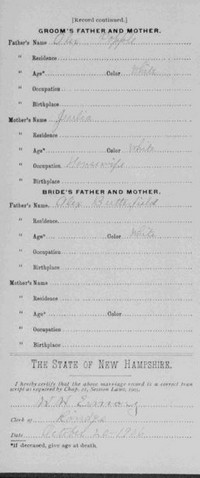 [Record continued.]
GROOM'S FATHER AND MOTHER.
Father's Name Alex
" Residence
" Age* Color White
" Occupation
" Birthplace
Mother's Name Julia
" Residence
" Age* Color White
" Occupation Housewife
" Birthplace
BRIDE'S FATHER AND MOTHER.
Father's Name. Alex Butterfield
" Residence.
" Age* Color White
" Occupation
" Birthplace
Mother's Name
" Residence
" Age* Color
" Occupation
" Birthplace
THE STATE OF NEW HAMPSHIRE.
I hereby certify that the above marriage record is a correct tran
script as required by Chap. 21, Session Laws, 1905.
W H Emory
Clerk of Rindge
Date October 20 1906
*If deceased, give age at death.